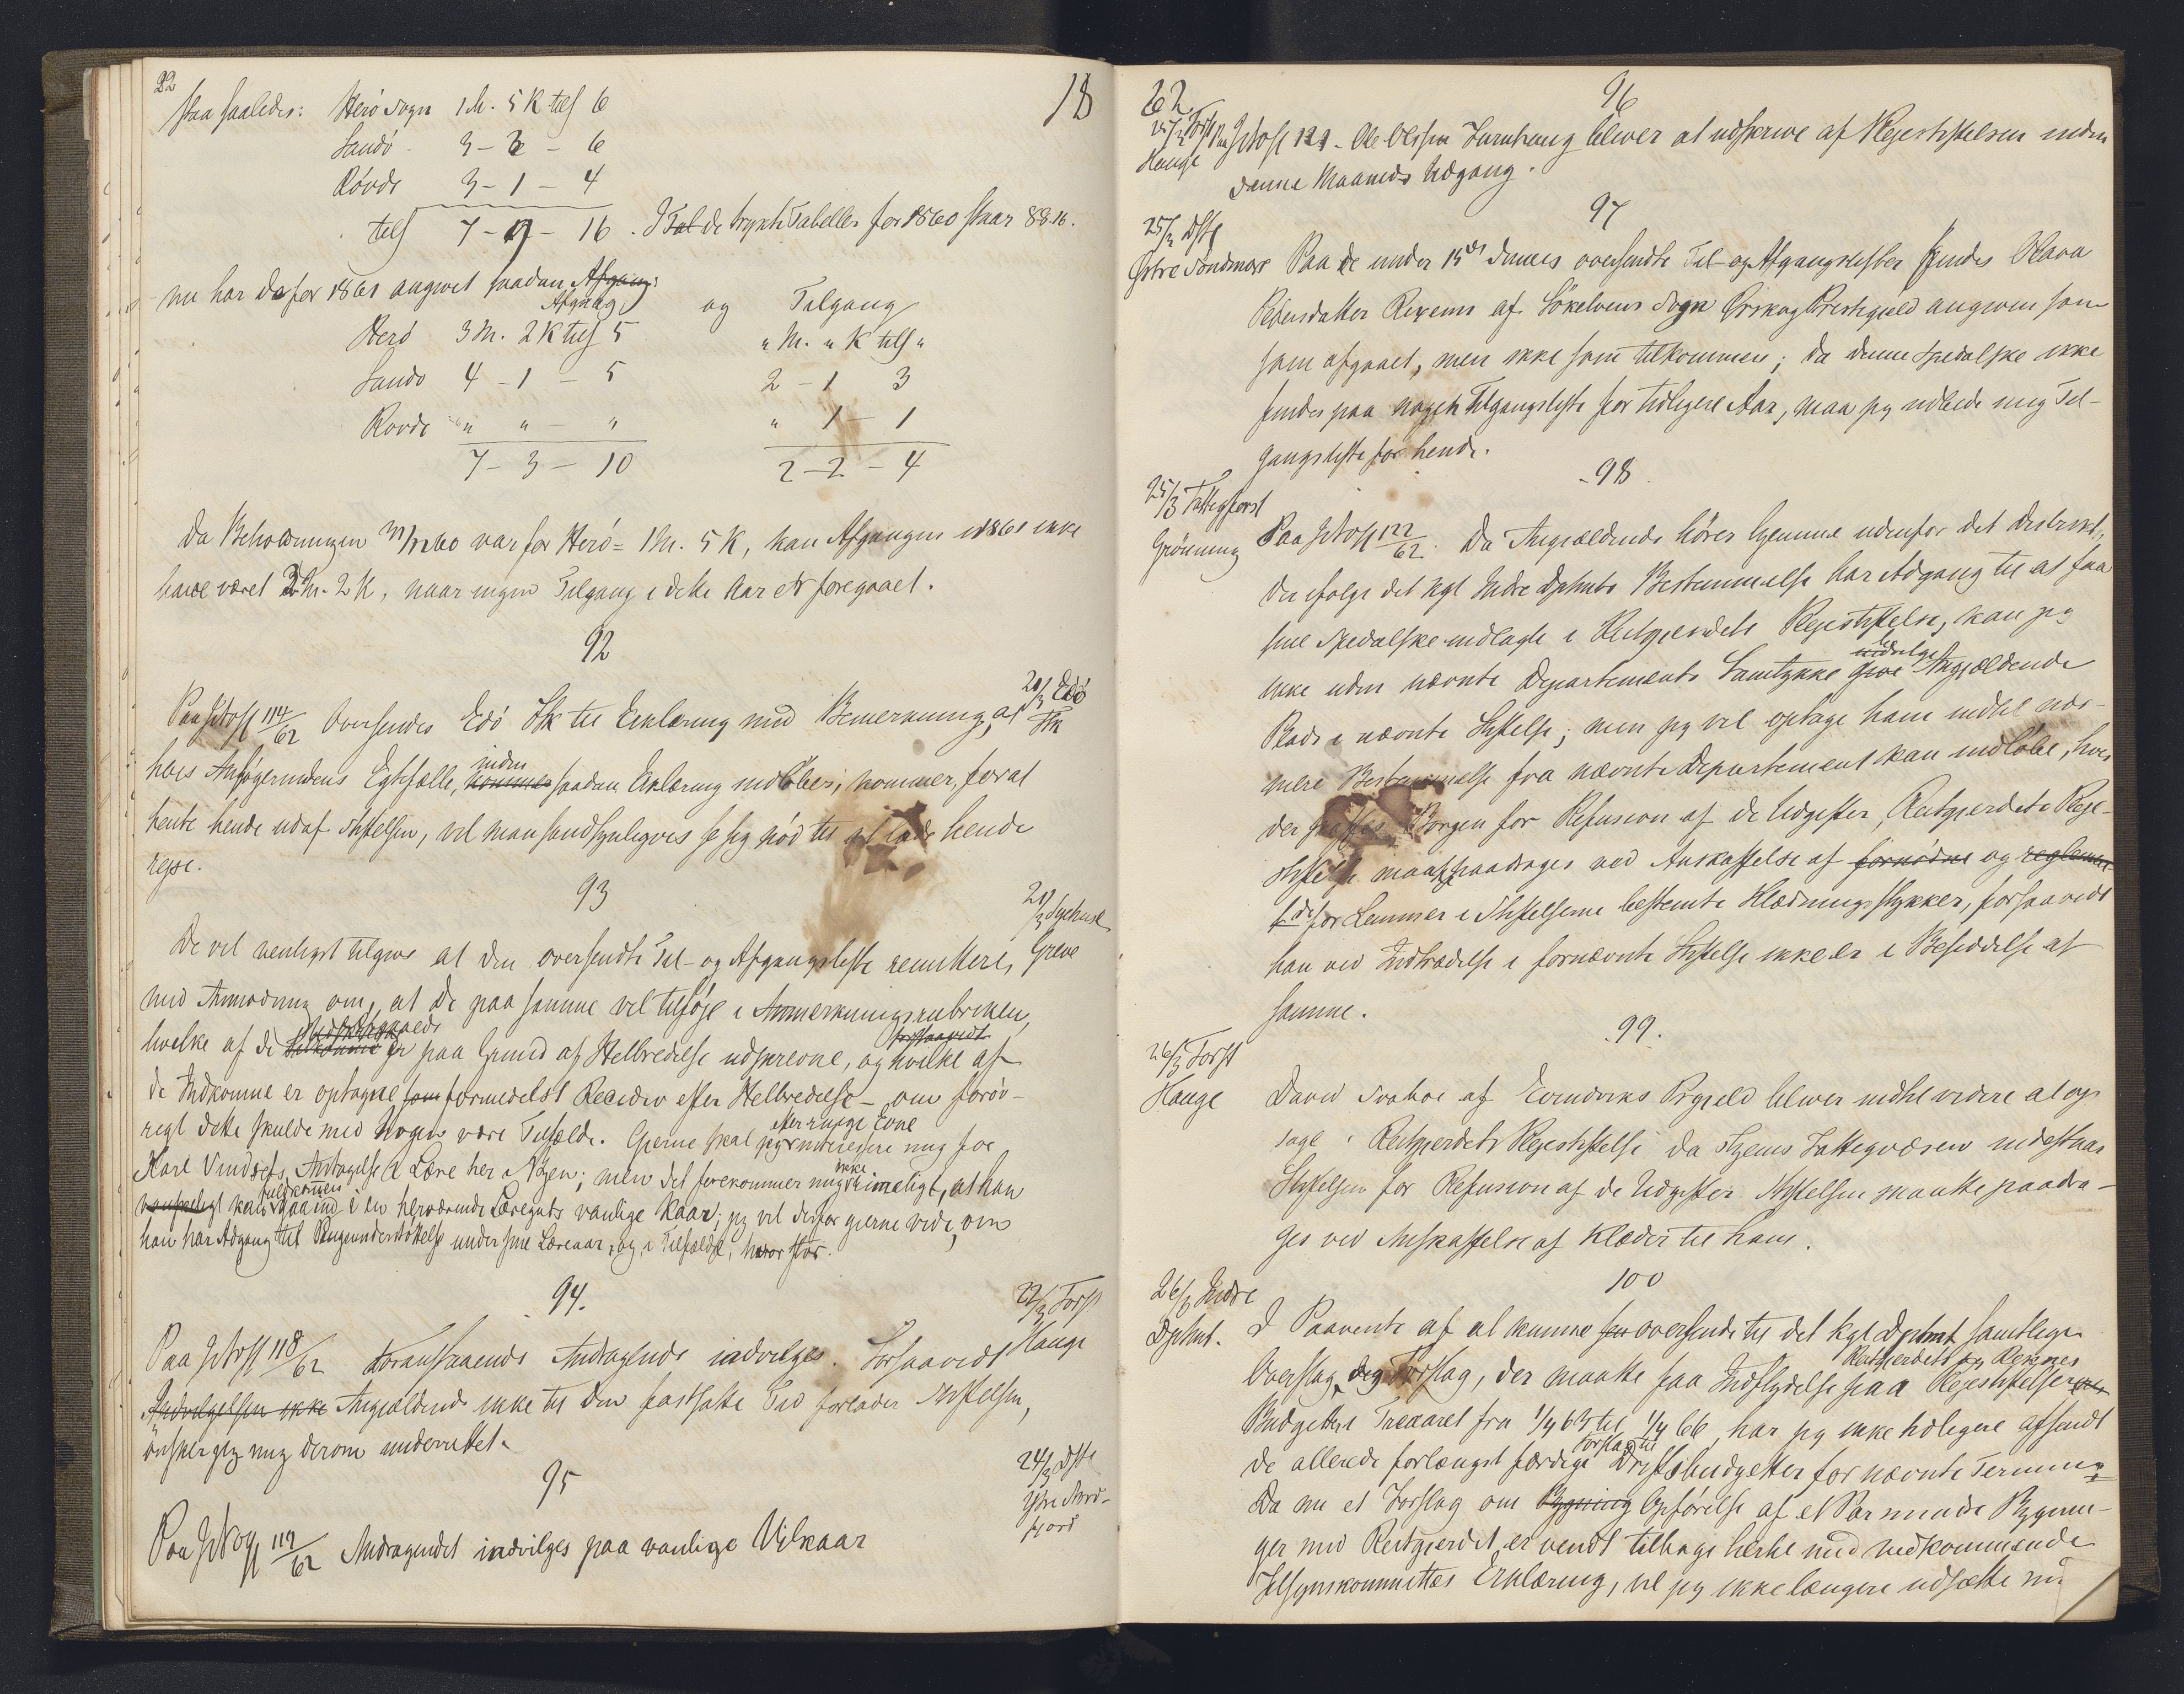 22
18
staa saaledes: Herö Sogn 1 M. 5 K tils 6
Sandö 3 - 3 - 6
Rövde 3 - 1 - 4
tils 7 - 9 - 16. I de trykte Tabeller for 1860 staar 8 8 16.
nu har De for 1861 angivet saadan Afgang:
Afgang og Tilgang
Herö 3 M. 2 K tils 5 " M. " K tils "
Sandö 4 - 1 - 5 2 - 1 3
Rovde " " - " " 1 - 1
7 - 3 - 10 2 - 2 - 4
Da Beholdningen 31/12 60 var for Herö = 1 M. 5 K, kan Afgangen i 1861 ikke
have været 3 M. 2 K, naar ingen Tilgang i dette Aar er foregaaet.
92
20/3 Edö
Fk
Paa 114/62 Oversendes Edö Fk til Erklæring med Bemerkning, at
hvis Ansøgerindens Egtefælle, inden kommer saadan Erklæring indløber, kommer, for at
hente hende ud af Stiftelsen, vil man sandsynligvis se sig nød til at lade hende
rejse.
93
20/3 Sygehuset
Greve
De vil venligst tilgive at den oversendte Til- og Afgangsliste remitteres,
med Anmodning om, at De paa samme vil tilföje i Anmerkningsrubriken,
hvilke af de Udskrevne er paa Grund af Helbredelse udskrevne, og hvilke af
forsaavidt
de Indkomne er optagne som formedelst Recidiv efter Helbredelse - om forøv-
rigt dette skulde med Nogen være Tilfælde. Gjerne skal jeg efter ringe Evne interessere mig for
Karl Vindsets Antagelse i Lære her i Byen; men det forekommer mig ikke rimeligt, at han
fuldkommen
kan gaa ind i en herværende Læreguts vanlige Kaar; jeg vil derfor gjerne vide, om
han har Adgang til Pengeunderstøttelse under sine Læreaar, og i Tilfælde, hvor stor.
94.
22/3 Forst
Hauge
Paa 118/62 Foranstaaende Andragende indvilges. Forsaavidt
Indvilgelsen ikke Angjældende ikke til den fastsatte Tid forlader Stiftelsen,
ønsker jeg mig derom underrettet.
95
24/3 Dstl
Ytre Nord-
fjord
Paa 119/62 Andragendet indvilges paa vanlige Vilkaar
62
96
25/3 Forst
Hauge
Paa 121. Ole Olssen bliver at udskrive af Plejestiftelsen inden
denne Maaneds Udgang.
97
25/3 Dstl
Østre Söndmöre
Paa de under 15de dennes oversendte Til- og Afgangslister findes Olava
Pedersdatter Rexem af Sökelvens Sogn Ørskog Prestegjeld angiven som
som afgaaet, men ikke som tilkommen; da denne Spedalske ikke
findes paa nogen Tilgangsliste for tidligere Aar, maa jeg udbede mig Til-
gangsliste for hende.
98
25/3 Fattigforst
Grönning
Paa 122/62. Da Angjældende hører hjemme udenfor det Distrikt,
der ifølge det kgl Indre Dptmts Bestemmelse har Adgang til at faa
sine Spedalske indlagte i Reitgjerdets Plejestiftelse, kan jeg
ikke uden nævnte Departements Samtykke give indvilge Angjældende
Plads i nævnte Stiftelse; men jeg vil optage ham indtil nær-
mere Bestemmelse fra nævnte Departement kan indløbe, hvis
der Borgen for Refusion af de Udgifter, Reitgjerdets Pleje-
stiftelse maatte paadrages ved Anskaffelse af fornødne og reglemen-
for Lemmer i Stiftelserne bestemte Klædningsstykker, forsaavidt
han ved Indtrædelse i fornævnte Stiftelse ikke er i Besiddelse af
samme.
99.
26/3 Forst
Hauge
David af Evindviks Prgjeld bliver indtil videre at op-
tage i Reitgjerdets Plejestiftelse da Hjems Fattigvæsen indestaar
Stiftelsen for Refusion af de Udgifter Stiftelsen maatte paadra-
ges ved Anskaffelse af Klæder til ham.
100
26/3 Indre
Dptmt.
I Paavente af at kunne oversende til det kgl Dptmt samtlige
Overslag og Forslag, der maatte faa Indflydelse paa Reitgjerdets og Reknes Plejestiftelsers
Budgetter i Treaaret fra 1/4 63 til 1/4 66, har jeg ikke tidligere afsendt
de allerede forlængst færdige Forslag til Driftsbudgetter for nævnte Termin.
Da nu et Forslag om Bygning Opførelse af et Par mindre Bygnin-
ger ved Reitgjerdet, er vendt tilbage hertil med vedkommende
Tilsynskommittes Erklæring, vil jeg ikke længere udsætte mi